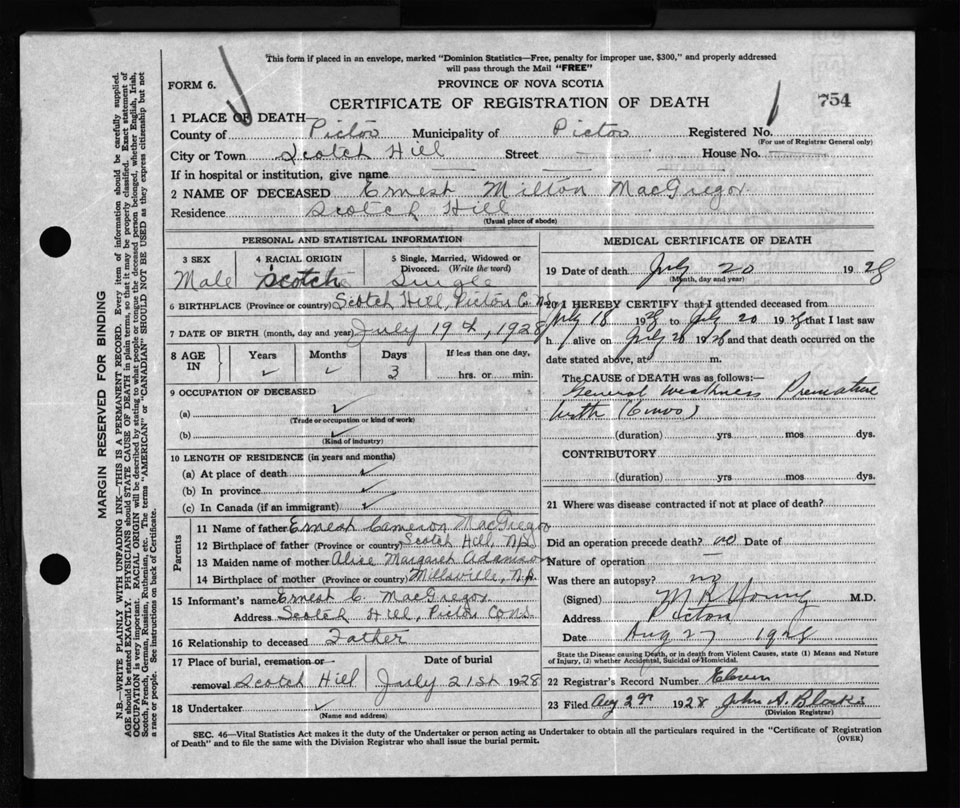 This form if placed in an envelope, marked "Dominion Statistics—Free, penalty for improper use, $300," and properly addressed
will pass through the Mail "FREE"
FORM 6.
PROVINCE OF NOVA SCOTIA
CERTIFICATE OF REGISTRATION OF DEATH
754
1 PLACE OF DEATH
County of Pictou Municipality of Pictou Registered No.
(For use of Registrar General only)
City or Town Scotch Hill Street — House No. —
If in hospital or institution, give name — — —
2 NAME OF DECEASED Ernest Milton MacGregor
Residence Scotch Hill
(Usual place of abode)
MARGIN RESERVED FOR BINDING
N.B.—WRITE PLAINLY WITH UNFADING INK—THIS IS A PERMANENT RECORD. Every item of information should be carefully supplied.
AGE should be stated EXACTLY. PHYSICIANS should STATE CAUSE OF DEATH in plain terms, so that it may be properly classified. Exact statement of
OCCUPATION is very important. RACIAL ORIGIN will be described by stating to what people or tongue the deceased person belonged, whether English, Irish,
Scotch, French, German, Russian, Ruthenian, etc. The terms "AMERICAN" or "CANADIAN" SHOULD NOT BE USED as they express citizenship but not
a race or people. See instructions on back of Certificate.
PERSONAL AND STATISTICAL INFORMATION
3 SEX 4 RACIAL ORIGIN 5 Single, Married, Widowed or
Divorced. (Write the word)
Male Scotch Single
6 BIRTHPLACE (Province or country) Scotch Hill, Pictou Co. N.S.
7 DATE OF BIRTH (month, day and year) July 19th, 1928
8 AGE IN Years Months Days If less than one day,
3 hrs. or min.
9 OCCUPATION OF DECEASED
(a)
(Trade or occupation or kind of work)
(b)
(Kind of industry)
10 LENGTH OF RESIDENCE (in years and months)
(a) At place of death
(b) In province
(c) In Canada (if an immigrant)
Parents
11 Name of father Ernest Cameron MacGregor
12 Birthplace of father (Province or country) Scotch Hill, N.S.
13 Maiden name of mother Alice Margaret Adamson
14 Birthplace of mother (Province or country) Millsville, N.S.
15 Informant's name Ernest C. MacGregor
Address Scotch Hill, Pictou Co N.S.
16 Relationship to deceased Father
17 Place of burial, cremation or Date of burial
removal Scotch Hill July 21st 1928
18 Undertaker
(Name and address)
MEDICAL CERTIFICATE OF DEATH
19 Date of death July 20 1928
(Month, day and year)
20 I HEREBY CERTIFY that I attended deceased from
July 18 1928 to July 20 1928 that I last saw
h alive on July 20 1928 and that death occurred on the
date stated above, at m.
The CAUSE of DEATH was as follows:—
General Weakness Premature
birth (6 mos)
(duration) yrs mos dys.
CONTRIBUTORY
(duration) yrs mos dys.
21 Where was disease contracted if not at place of death?
Did an operation precede death? no Date of
Nature of operation —
Was there an autopsy? no
(Signed) M R Young M.D.
Address Pictou
Date Aug 27 1928
State the Disease causing Death, or in death from Violent Causes, state (1) Means and Nature
of Injury, (2) whether Accidental, Suicidal or Homicidal.
22 Registrar's Record Number Eleven
23 Filed Aug 1928 John A.
(Division Registrar)
SEC. 46—Vital Statistics Act makes it the duty of the Undertaker or person acting as Undertaker to obtain all the particulars required in the "Certificate of Registration
of Death" and to file the same with the Division Registrar who shall issue the burial permit.
(OVER)